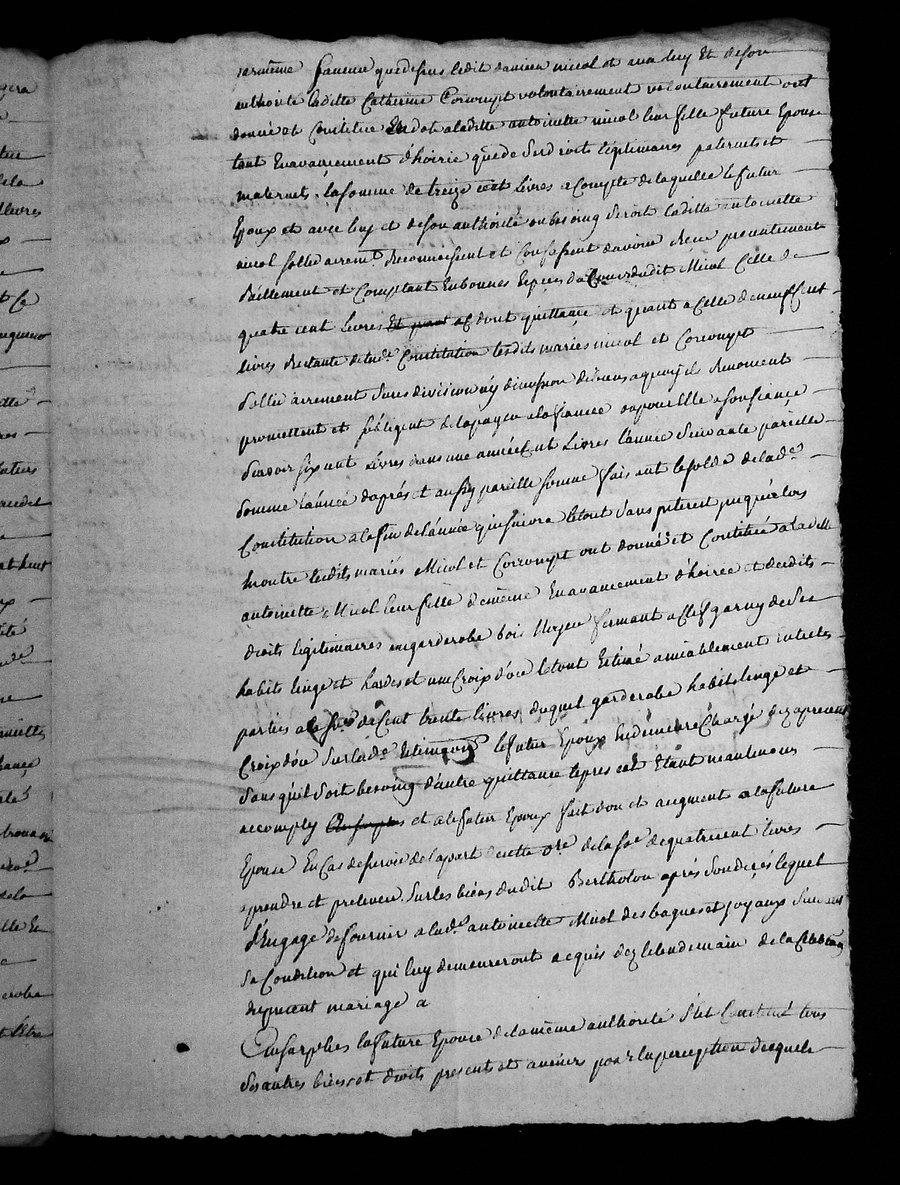 par même faveur que dessus ledit damien micol et avec luy Et de son
authorité laditte Catherine Corrompt volontairement vo contairement ont
donné et Constitué En dot a laditte antoinette micol leur fille future Epouse
tant En avancement d'hoirie que de Ses droits légitimaires paternels et
maternels, la somme de treize cent Livres a Compte de laquelle le futur
Epoux et avec luy et de son authorité en besoing Seroit laditte antoinette
micol sollidairemt. Reconnoissent et Confessent d'avoir Recu presentement
Réellement et Comptant En bonnes Espèces de Cours dudit Micol Celle de
quatre cent Livres Et quant ac dont quittance et quant a Celle de neuf Cent
livres Restante de lade. Constitution lesdits mariés micol et Corrompt
Sollidairement Sans division ny discussion de biens a quoy ils Renoncent
promettent et s'obligent de la payer a la fiancée ou pour Elle a Son fiancé
Sçavoir six cent Livres dans une année Cent Livres l'année Suivante pareille
Somme l'année d'après et aussy pareille somme faisant le solde de lade.
Constitution a la fin de l'année qui suivra le tout Sans interest jusqu'alors
En outre lesdits mariés Micol et Corrompt ont donné et Constitué a laditte
antoinette Micol leur fille de même En avancement d'hoirie et desdits
droits légitimaires un garderobe bois Noyer fermant a Clef garny de Ses
habits linge et hardes et une Croix d'or le tout Estimé amiablement entre les
parties a la Sme. de Cent trente livres, duquel garderobe habits linge et
Croix d'or Sur lade. Estimation le futur Epoux En demeure Chargé dez apresent
Sans qu'il Soit besoing d'autre quittance le present Etant maintenant
accomply Au surplus et a le futur Epoux fait don et augment a la future
Epouse En Cas de Survie de la part de cette dre. de la Sme. de quatre cent livres
a prendre et prelever Sur les biens dudit Bertholon après Son decés lequel
s'Engage de fournir a lade. antoinette Micol des bagues et joyaux Suivant
Sa Condition et qui luy demeureront acquis dez le lendemain de la Célébration
du present mariage a
Au surplus la future Epouse de la même authorité S'est Constitué tous
Ses autres biens et droits presents et avenirs pour la perception desquels